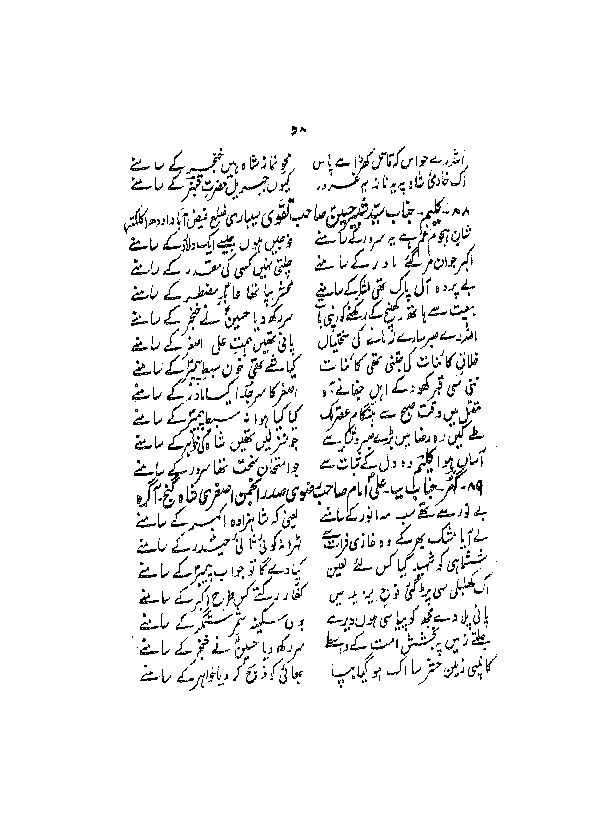 ۵۸
اللہ رے حواس کہ قاتل کھڑا ہے پاس محو نماز شاہ ہیں خنجر کے سامنے
اک خادمی شاہ پہ یہ ناز یہ غرور کیوں جبریل حضرت قنبر کے سامنے
۸۸۔ کلیم۔ جناب سید شبیر حسین صاحب نقوی بہاری ضلع فیض آباد اودھ
شان ہجوم غم ہے یہ سرور کے سامنے فوجیں ہوں جیسے ایک دلاور کے سامنے
اکبر جوان مر گئے مادر کے سامنے چلتی نہیں کسی کی مقدر کے سامنے
بے پردہ آل پاک تھی لشکر کے سامنے محشر بپا تھا عابد مضطر کے سامنے
بیعت سے ہاتھ کھینچ کے سر رکھ دیا حسین نے خنجر کے سامنے
اللہ رے صبر سارے زمانے کی سختیاں پانی تھیں ہمت علی اصغر کے سامنے
فلانی کائنات کی جتنی تھی کائنات کیا شے تھی خون سبط پیمبر کے سامنے
ننھی سی قبر کھود کے اہل جفا نے آہ اصغر کا سر جدا کیا مادر کے سامنے
مقتل میں وقت صبح سے ہنگام عصر تک کیا کیا ہوا نہ سبط پیمبر کے سامنے
طے کیں رہ رضا میں بڑے صبر و شکر سے جو منزلیں تھیں شاہ کی خنجر کے سامنے
آساں ہوا کلیم وہ دل کے ثبات سے جو امتحان سخت تھا سرور کے سامنے
۸۹۔ گہر۔ جناب سید علی امام صاحب رضوی صدر انجمن اصغری شاہ گنج۔ آگرہ
بے نور تھے سب مہ انور کے سامنے یعنی کہ شاہزادہ اکبر کے سامنے
لے آیا مشک بھر کے وہ غازی فرات سے ٹہرا نہ کوئی ثانی حیدر کے سامنے
ششماہی کو شہید کیا کس لئے لعین کیا دے گا تو جواب پیمبر کے سامنے
اک کھلبلی سی پڑ گئی فوج یزید میں کفار رکتے کس طرح اکبر کے سامنے
پانی پلا دے مجھ کو پیاسی ہوں دیر سے بولی سکینہ شمر ستمگر کے سامنے
جلتے زمیں پہ بخشش امت کے واسطے سر رکھ دیا حسین نے خنجر کے سامنے
کانپی زمین حشر سا اک ہو گیا بپا بھائی کو ذبح کر دیا خواہر کے سامنے